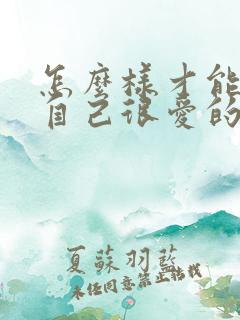 怎麼樣才能
自己很愛的
夏蘇羽藍
未任同意禁止结载